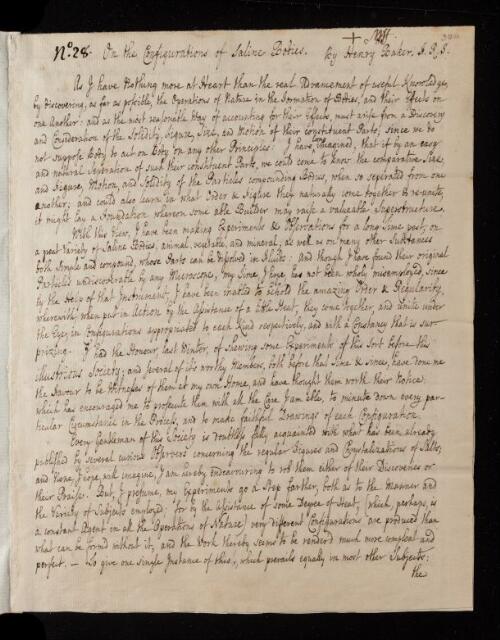 No. 28. On the Configurations of Saline Bodies. By Henry Baker, F.R.S.
As I have Nothing more at Heart than the real Advancement of useful Knowledge,
by discovering, as far as possible, the Operations of Nature in the Formation of Bodies, and their Effects on
one Another: and as the most reasonable Way of accounting for their Effects, must arise from a Discovery
and Consideration of the Solidity, Figure, Size, and Motion of their constituent Parts, since we do
not suppose Body to act on Body on any other Principles: I have long imagined, that if by an easy
and natural Separation of such their constituent Parts, we could come to know the comparative Size,
and Figure, Motion, and Solidity of the Particles compounding Bodies, when so seperated from one
another; and could also learn in what Order & Figure they naturally come together & re-unite,
it might lay a Foundation whereon some able Builder may raise a valuable Superstructure.
With this View, I have been making Experiments & Observations for a long time past, on
a great Variety of Saline Bodies, animal, vegetable, and mineral, as well as on many other Substances
both simple and compound, whose Parts can be dissolved in Fluids: And though I have found their original
Particles undiscoverable by any Microscope, my Time, I hope, has not been wholly misemployed, since
by the Help of that Instrument, I have been enabled to behold the amazing Order & Regularity,
wherewith, when put in Action by the Assistance of a little Heat, they come together, and unite under
the Eye, in Configurations appropriated to each Kind respectively, and with a Constancy that is sur-
prizing. I had the Honour, last Winter, of shewing some Experiments of this Sort before this
illustrious Society; and several of its worthy Members, both before that time & since, have done me
the Favour to be Witnesses of them at my own House, and have thought them worth their Notice:
which has encouraged me to prosecute them with all the Care I am able, to minute down every par-
ticular Circumstance in the Process, and to make faithful Drawings of each Configuration.
Every Gentleman of this Society is doubtless fully acquainted with what has been already
published by several curious Observers concerning the regular Figures and Crystalizations of Salts;
and None, I hope, will imagine, I am hereby endeavouring to rob them either of their Discoveries or
their Praise. But, I presume, my Experiments go a Step farther, both as to the Manner and
the Variety of Subjects employed; for by the Assistance of some Degree of Heat, (which, perhaps, is
a constant Agent in all the Operations of Nature) very different Configurations are produced than
what can be found without it; and the Work thereby seems to be renderd much more compleat and
perfect. — To give one single Instance of this, which prevails equally in most other Subjects:
the